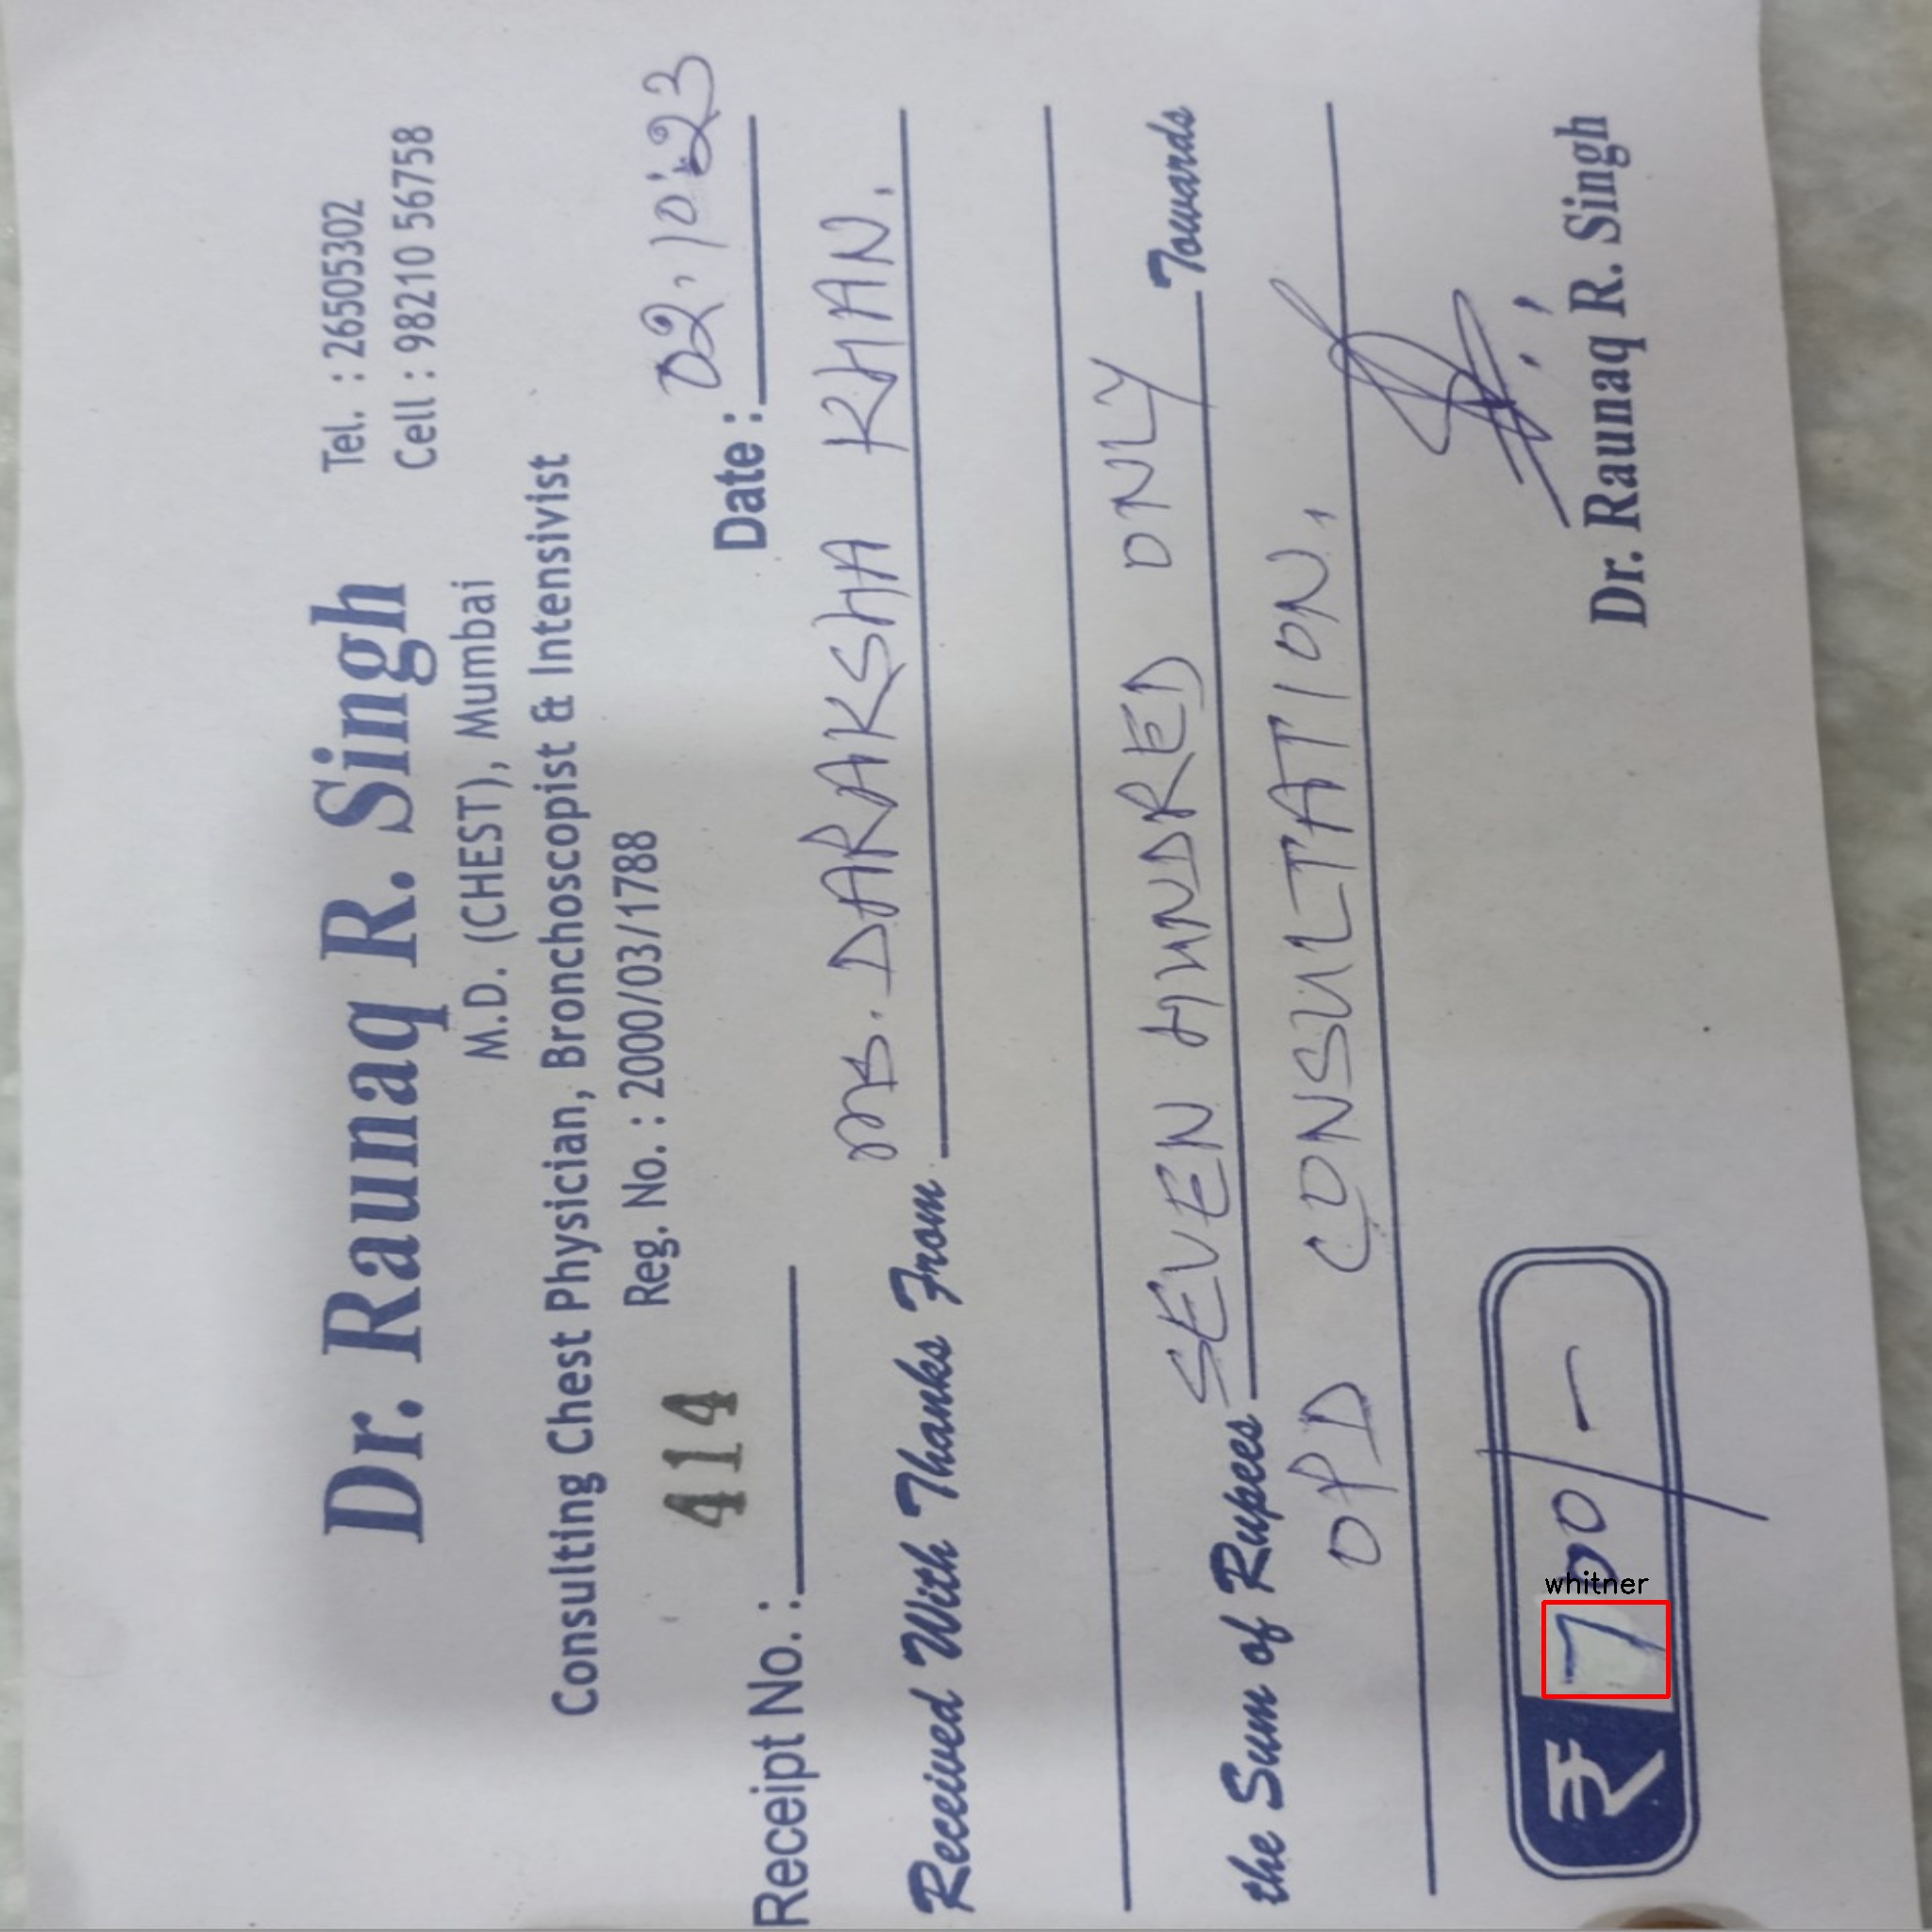 Dr. Raunaq R. Singh
Tel. : 26505302
Cell : 98210 56758
M.D. (CHEST), Mumbai
Consulting Chest Physician, Bronchoscopist & Intensivist
Reg. No. : 2000/03/1788
Receipt No. : 414
Date : 02.10.23
Received With Thanks From MS. DARAKSHA KHAN.
the Sum of Rupees SEVEN HUNDRED ONLY Towards
OPD CONSULTATION.
₹ 700/-
whitner
Dr. Raunaq R. Singh